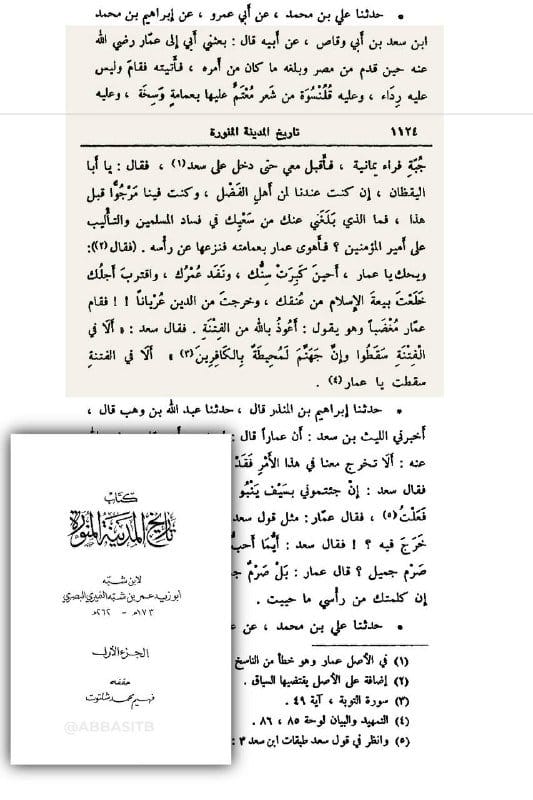 • حدثنا علي بن محمد ، عن أبي عمرو ، عن إبراهيم بن محمد
ابن سعد بن أبي وقاص ، عن أبيه قال : بعثني أبي إلى عمّار رضي الله
عنه حين قدم من مصر وبلغه ما كان من أمره ، فأتيته فقام وليس
عليه رداء ، وعليه قُلُنْسُوَة من شعر مُعْتَمٌّ عليها بعمامة وَسِخَة ، وعليه
١١٢٤ تاريخ المدينة المنورة
جُبّة فراء يمانية ، فأقبل معي حتى دخل على سعد(١) ، فقال : يا أبا
اليقظان ، إن كنت عندنا لمن أهل الفَضْل ، وكنت فينا مَرْجُوًّا قبل
هذا ، فما الذي بَلَغَني عنك من سَعْيِك في فساد المسلمين والتأليب
على أمير المؤمنين ؟ فأهوى عمار بعمامته فنزعها عن رأسه . (فقال (٢)):
ويحك يا عمار ، أحينَ كَبِرَتْ سِنُّك ، ونَفَد عُمْرُك ، واقتربَ أجلُك
خَلَعْتَ بيعةَ الإسلام من عُنقك ، وخرجتَ من الدين عُرْياناً ! ! فقام
عمّار مُغْضَباً وهو يقول : أعوذُ بالله من الفِتْنَة . فقال سعد : « أَلَا في
الْفِتْنَةِ سَقَطُوا وإنَّ جَهَنَّمَ لَمُحِيطَةٌ بِالكَافِرِينَ(٣) » ألا في الفتنة
سقطت يا عمار (٤) .
• حدثنا إبراهيم بن المنذر قال ، حدثنا عبد الله بن وهب قال ،
أخبرني الليث بن سعد : أن عماراً قال :
عنه : ألَا تخرج معنا في هذا الأمْرِ فَقَدْ
فقال سعد : إنْ جئتموني بسَيْف يَنْبُو
فَعَلْتُ (٥) ، فقال عمّار : مثل قول سعد
خَرَجَ فيه ؟ ! فقال سعد : أيُّمَا أحبُّ
صَرْم جميل ؟ قال عمار : بَلْ صَرْمٌ
إن كلمتك من رأسي ما حييت .
• حدثنا علي بن محمد ، عن
(١) في الأصل عمار وهو خطأ من الناسخ
(٢) إضافة على الأصل يقتضيها السياق .
(٣) سورة التوبة ، آية ٤٩ .
(٤) التمهيد والبيان لوحة ٨٥ ، ٨٦ .
(٥) وانظر في قول سعد طبقات ابن سعد ٣ :
كتاب
تاريخ المدينة المنورة
لابن شبّه
أبو زيد عمر بن شبّه النميري البصري
١٧٣هـ - ٢٦٢هـ
الجزء الأول
حققه
فهيم محمد شلتوت
@ABBASITB